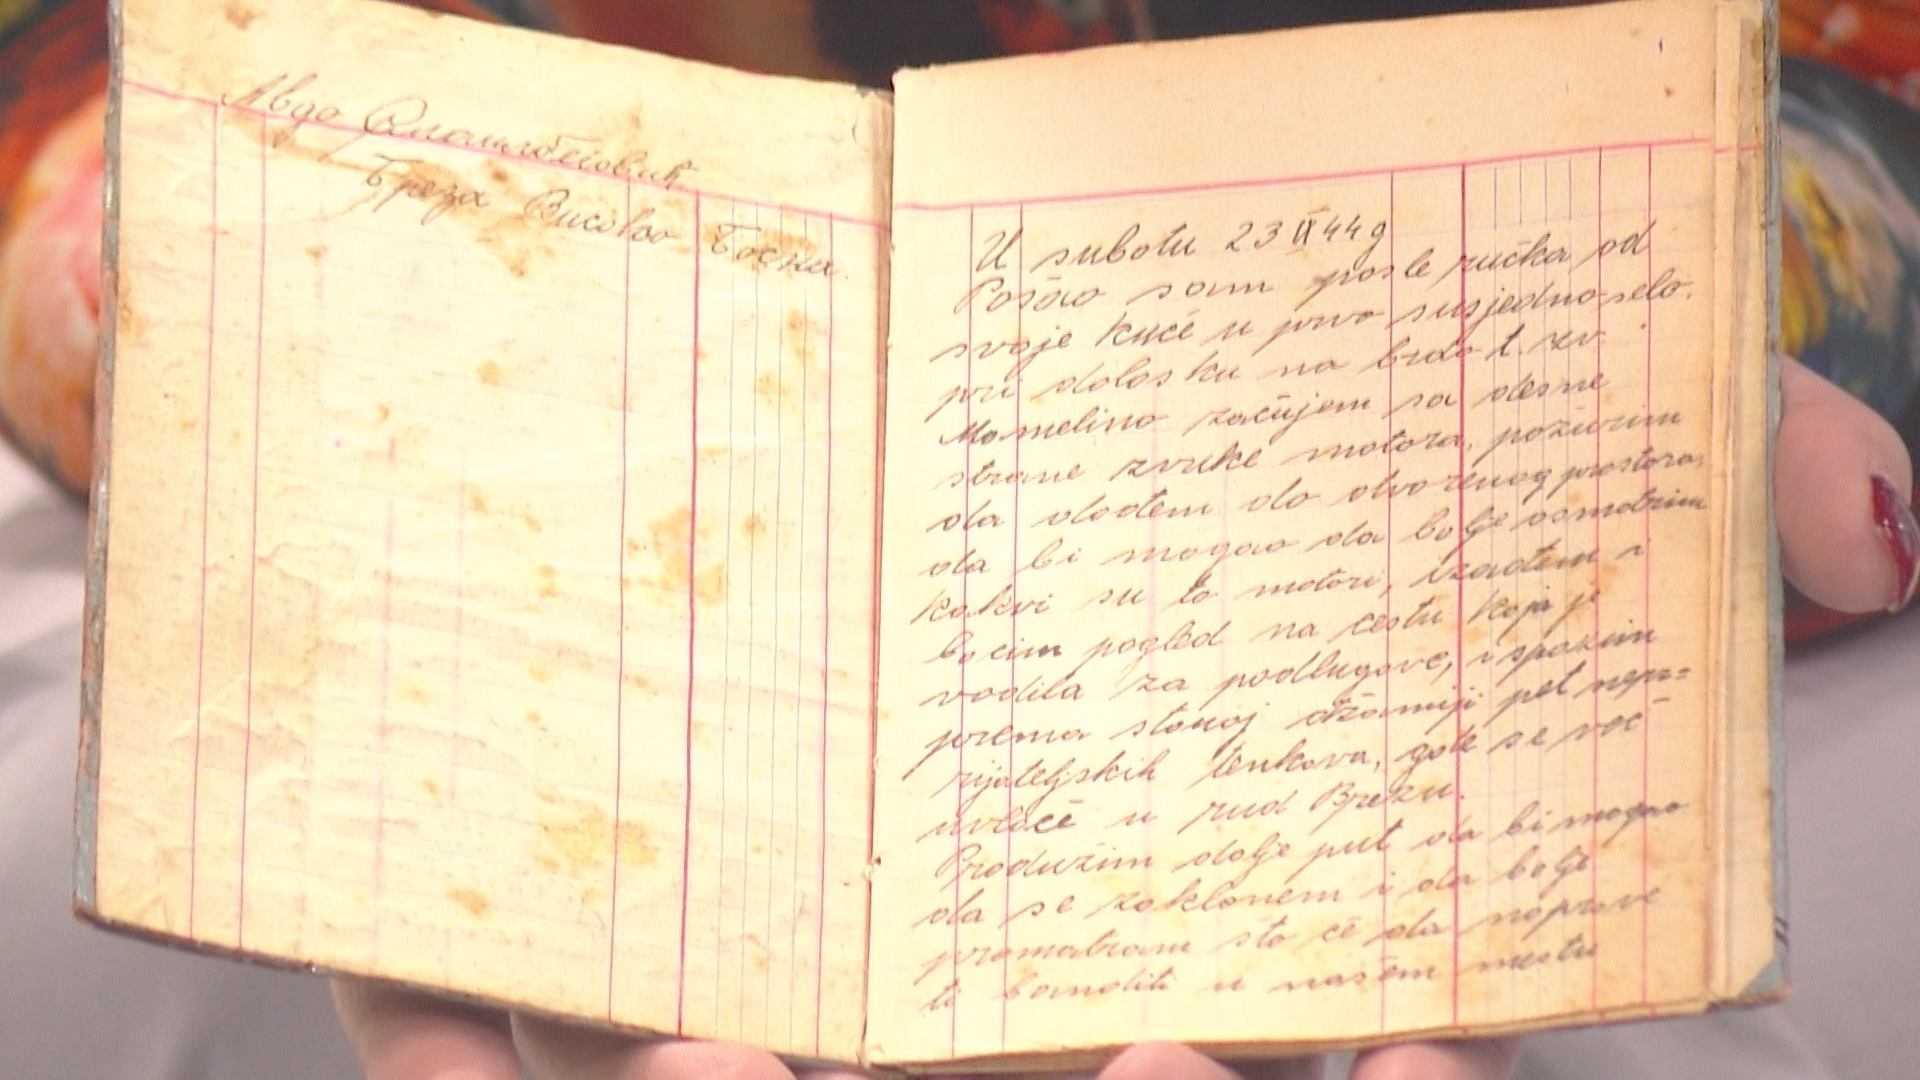 Авдо
Бреза Високо Босна.
U subotu 23 IX 44 g
Pošao sam posle ručka od
svoje kuće u prvo susjedno selo.
pri dolosku na brdo t. zv.
Mamelino začujem sa desne
strane zvuke motora, požurim
da dođem do otvorenog prostora,
da bi mogao da bolje osmotrim
kakvi su to motori, izađem i
bocim pogled na cestu koja je
vodila za podlugove, i spazim
prema staroj džamiji pet nepri=
rijateljskih tenkova, gde se već
uvlače u rud Brezu.
Produžim dolje put da bi mogao
da se zaklonem i da bolje
promatram šta će da naprave
ti banditi u našem mestu